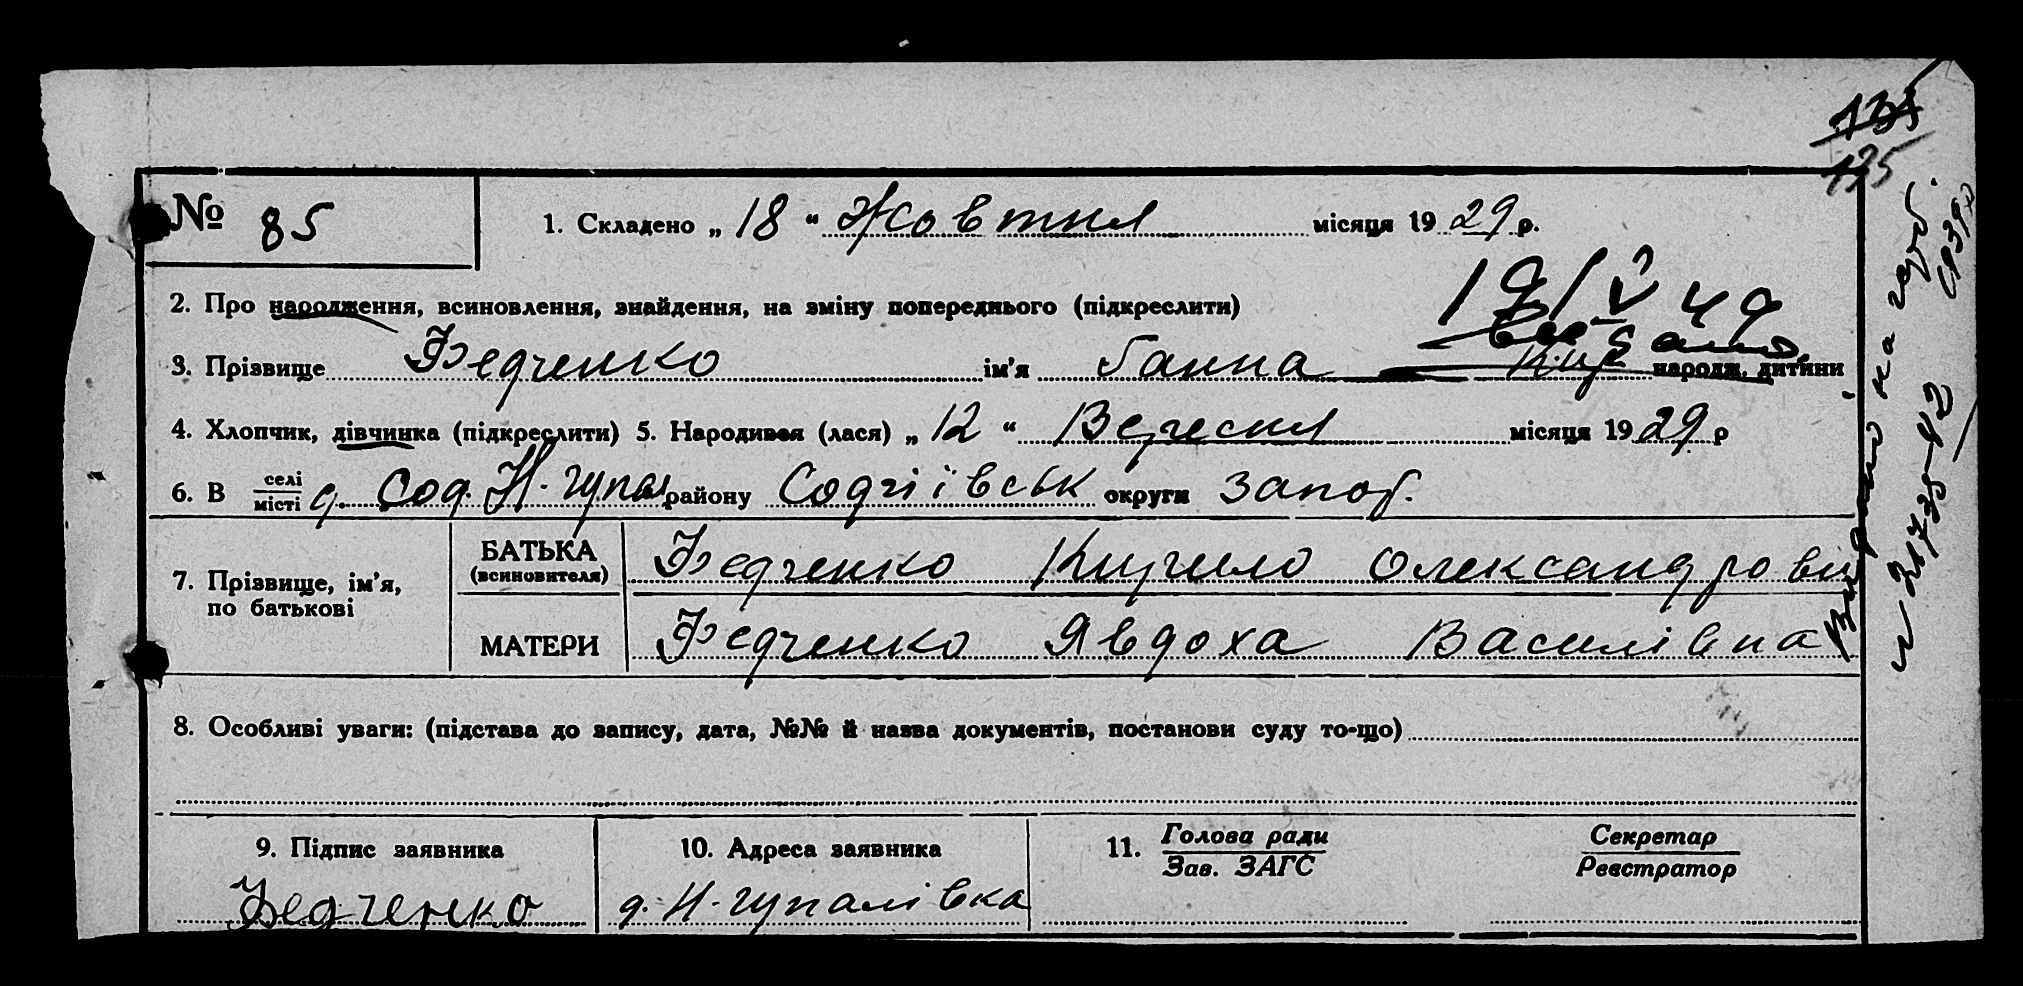 135
135
№ 85
1. Складено „ 18 " Жовтня місяця 1929 р.
2. Про народження, всиновлення, знайдення, на зміну попереднього (підкреслити)
19/V 49
3. Прізвище Федченко ім'я Ганна Кир народж. дитини
4. Хлопчик, дівчинка (підкреслити) 5. Народився (лася) „ 12 " Вересня місяця 1929 р
6. В селі/місті д. Соф. Н. Гупал району Софіївськ округи Запор.
7. Прізвище, ім'я, по батькові
БАТЬКА (всиновителя) Федченко Кирило Олександрови
МАТЕРИ Федченко Явдоха Василівна
8. Особливі уваги: (підстава до запису, дата, №№ й назва документів, постанови суду то-що)
9. Підпис заявника
Федченко
10. Адреса заявника
д. Н-гупалівка
11. Голова ради
Зав. ЗАГС
Секретар
Реєстратор